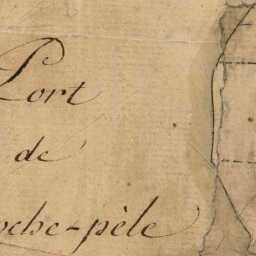 Port
de
oche-pèle